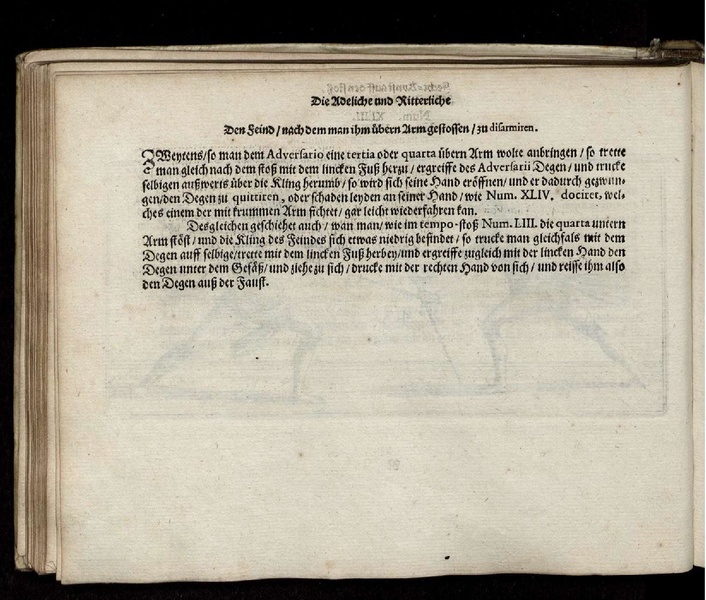 Die Adeliche und Ritterliche
Den Feind / nach dem man ihm übern Arm gestossen / zu disarmiren.
ZWeytens / so man dem Adversario eine tertia oder quarta übern Arm wolte anbringen / so trette
man gleich nach dem stoß mit dem lincken Fuß herzu / ergreiffe des Adversarii Degen / und trucke
selbigen außwerts über die Kling herumb / so wird sich seine Hand eröffnen / und er dadurch gezwun-
gen / den Degen zu quittiren, oder schaden leyden an seiner Hand / wie Num. XLIV. dociret, wel-
ches einem der mit krummen Arm fichtet / gar leicht wiederfahren kan.
Desgleichen geschiehet auch / wan man / wie im tempo-stoß Num. LIII. die quarta untern
Arm stöst / und die Kling des Feindes sich etwas niedrig befindet / so trucke man gleichfals mit dem
Degen auff selbige / trette mit dem lincken Fuß herbey / und ergreiffe zugleich mit der lincken Hand den
Degen unter dem Gefäß / und ziehe zu sich / drucke mit der rechten Hand von sich / und reisse ihm also
den Degen auß der Faust.